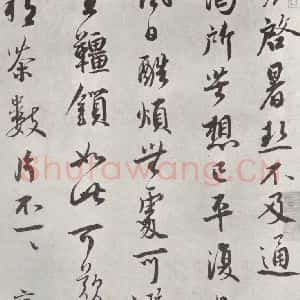 啓暑熱不及通
所苦想已平復
日酷煩無處可
韁鎖如此可歎
茶數片不一
Shufawang.CN